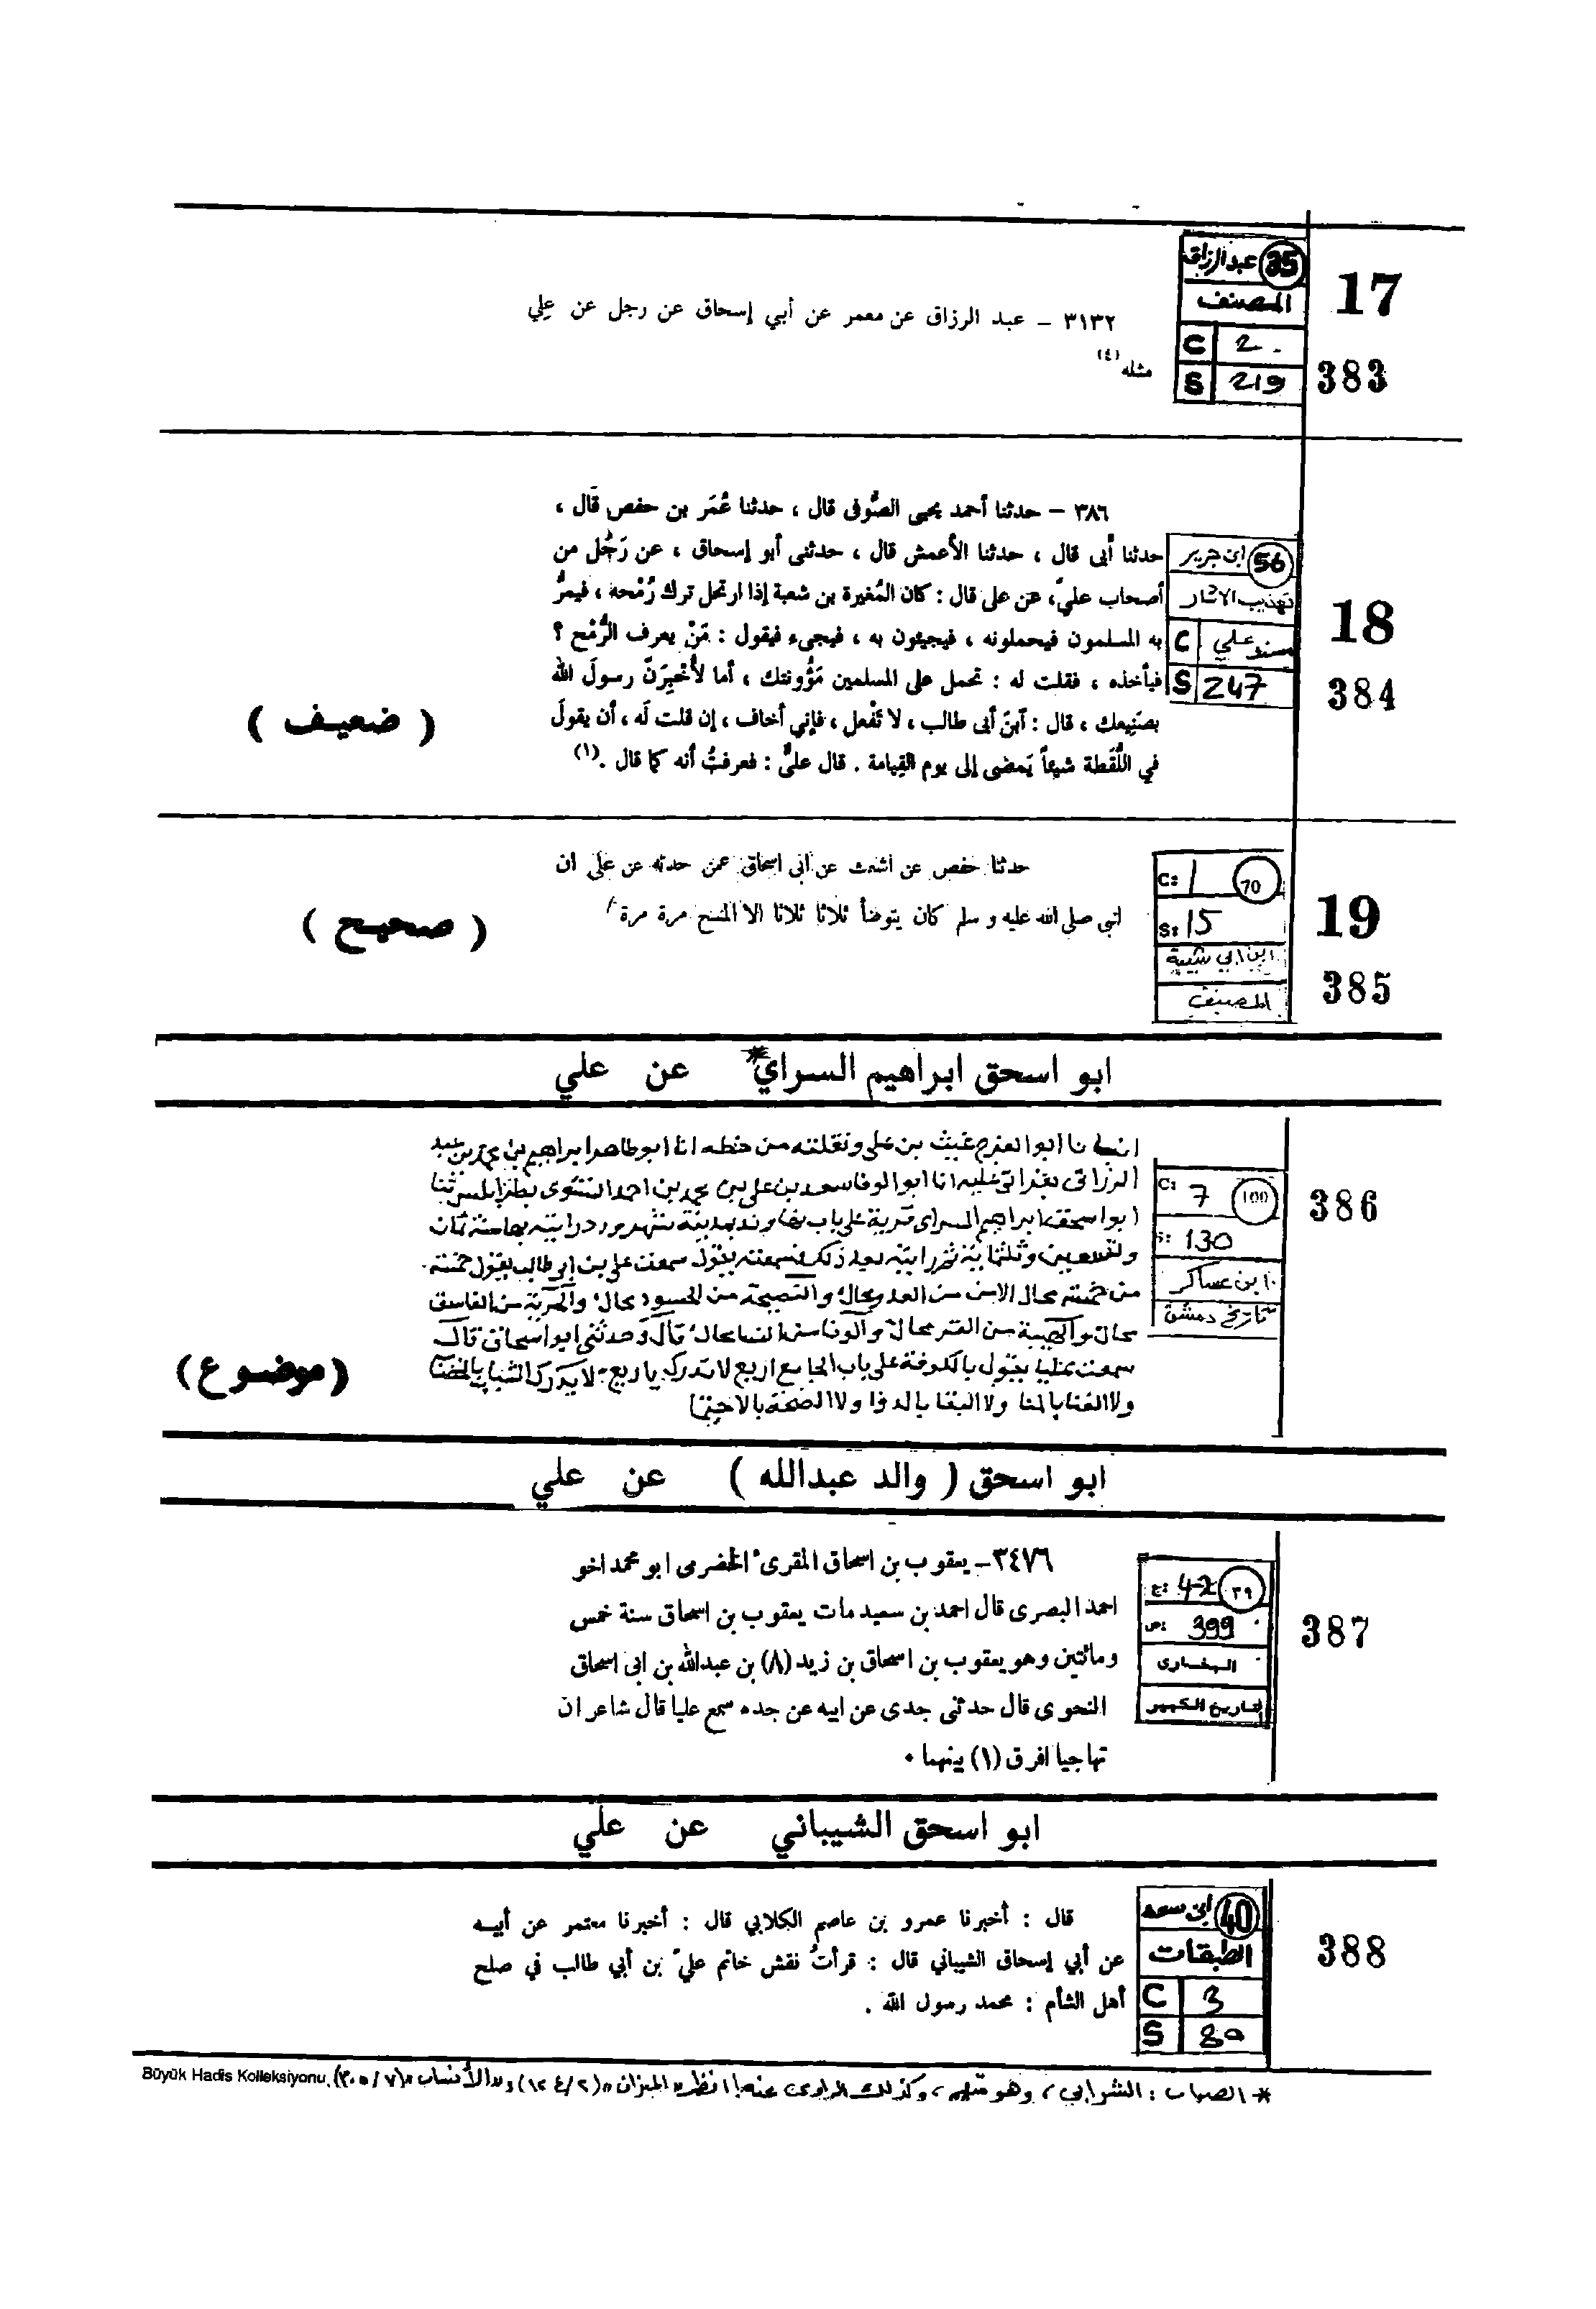 17
383
عبدالرزاق 35
المصنف
C 2
S 219
٣١٣٢ – عبد الرزاق عن معمر عن أبي إسحاق عن رجل عن علي
مثله (٤)
18
384
ابن جرير 56
تهذيب الآثار
C مسند علي
S 247
٣٨٦ – حدثنا أحمد يحيى الصُّوفى قال ، حدثنا عُمَر بن حفص قال ،
حدثنا أبى قال ، حدثنا الأعمش قال ، حدثنى أبو إسحاق ، عن رَجُل من
أصحاب عليّ، عن على قال : كان المُغيرة بن شعبة إذا ارتحل ترك رُمْحه ، فيمرُّ
به المسلمون فيحملونه ، فيجيئون به ، فيجىء فيقول : مَنْ يعرف الرُّمْح ؟
فيأخذه ، فقلت له : تحمل على المسلمين مَؤُونتك ، أما لأُخْبِرَنّ رسولَ الله
بصَنِيعك ، قال : آبنَ أبى طالب ، لا تَفْعل ، فإني أخاف ، إن قلت لَه ، أن يقولَ
في اللُّقَطة شيئاً يَمضى إلى يوم القِيامة . قال علىٌّ : فعرفتُ أنه كما قال .(١)
( ضعيف )
19
385
C: 1 70
S: 15
ابن ابي شيبة
المصنف
حدثنا حفص عن اشعث عن ابى اسحاق عمن حدثه عن على ان
انبى صلى الله عليه و سلم كان يتوضأ ثلاثا ثلاثا الا المسح مرة مرة
( صحيح )
ابو اسحق ابراهيم السراي* عن علي
386
C: 7 100
S: 130
ابن عساكر
تاريخ دمشق
ابو الفرج غيث بن علي ونقلته من خطه انا ابو طاهر ابراهيم بن محمد بن عبد
الرزاق عليه انا ابو الوفا سعد بن علي بن محمد بن احمد
ابو اسحق ابراهيم السراي قرية على باب نهاوند بمدينة شهرورد
ثم رايته بعد ذلك فسمعته يقول سمعت علي بن ابي طالب يقول خمسة
من خمسة محال الامن من العدو محال والنصيحة من الحسود محال والحرمة من الفاسق
محال والهيبة من الفقر محال والوفا من النسا محال قال وحدثني ابو اسحاق قال
سمعت عليا يقول بالكوفة على باب الجامع اربع لا تدرك باربع لا يدرك الشباب بالخضاب
ولا الغنا بالمنا ولا البقا بالدوا ولا الصحة بالاحتما
(موضوع)
ابو اسحق ( والد عبدالله ) عن علي
387
ج: 4-2 ٣٩
ص: 399
البخاري
التاريخ الكبير
٣٤٧٦– يعقوب بن اسحاق المقرىء الحضرمى ابو محمد اخو
احمد البصرى قال احمد بن سعيد مات يعقوب بن اسحاق سنة خمس
ومائتين وهو يعقوب بن اسحاق بن زيد (٨) بن عبدالله بن ابى اسحاق
النحوى قال حدثنى جدى عن ابيه عن جده سمع عليا قال شاعر ان
تهاجيا افرق (١) بينهما ٠
ابو اسحق الشيباني عن علي
388
ابن سعد 40
الطبقات
C 3
S 30
قال : أخبرنا عمرو بن عاصم الكلابي قال : أخبرنا معتمر عن أبيه
عن أبي إسحاق الشيباني قال : قرأتُ نقش خاتم عليّ بن أبي طالب في صلح
أهل الشأم : محمد رسول الله .
Büyük Hadis Kolleksiyonu.
* الصواب : الشرابي ، وهو متهم ، وكذلك الراوي عنه! انظر «الميزان» (٢/١٢٤) و«الأنساب» (٧/٣٠٥)